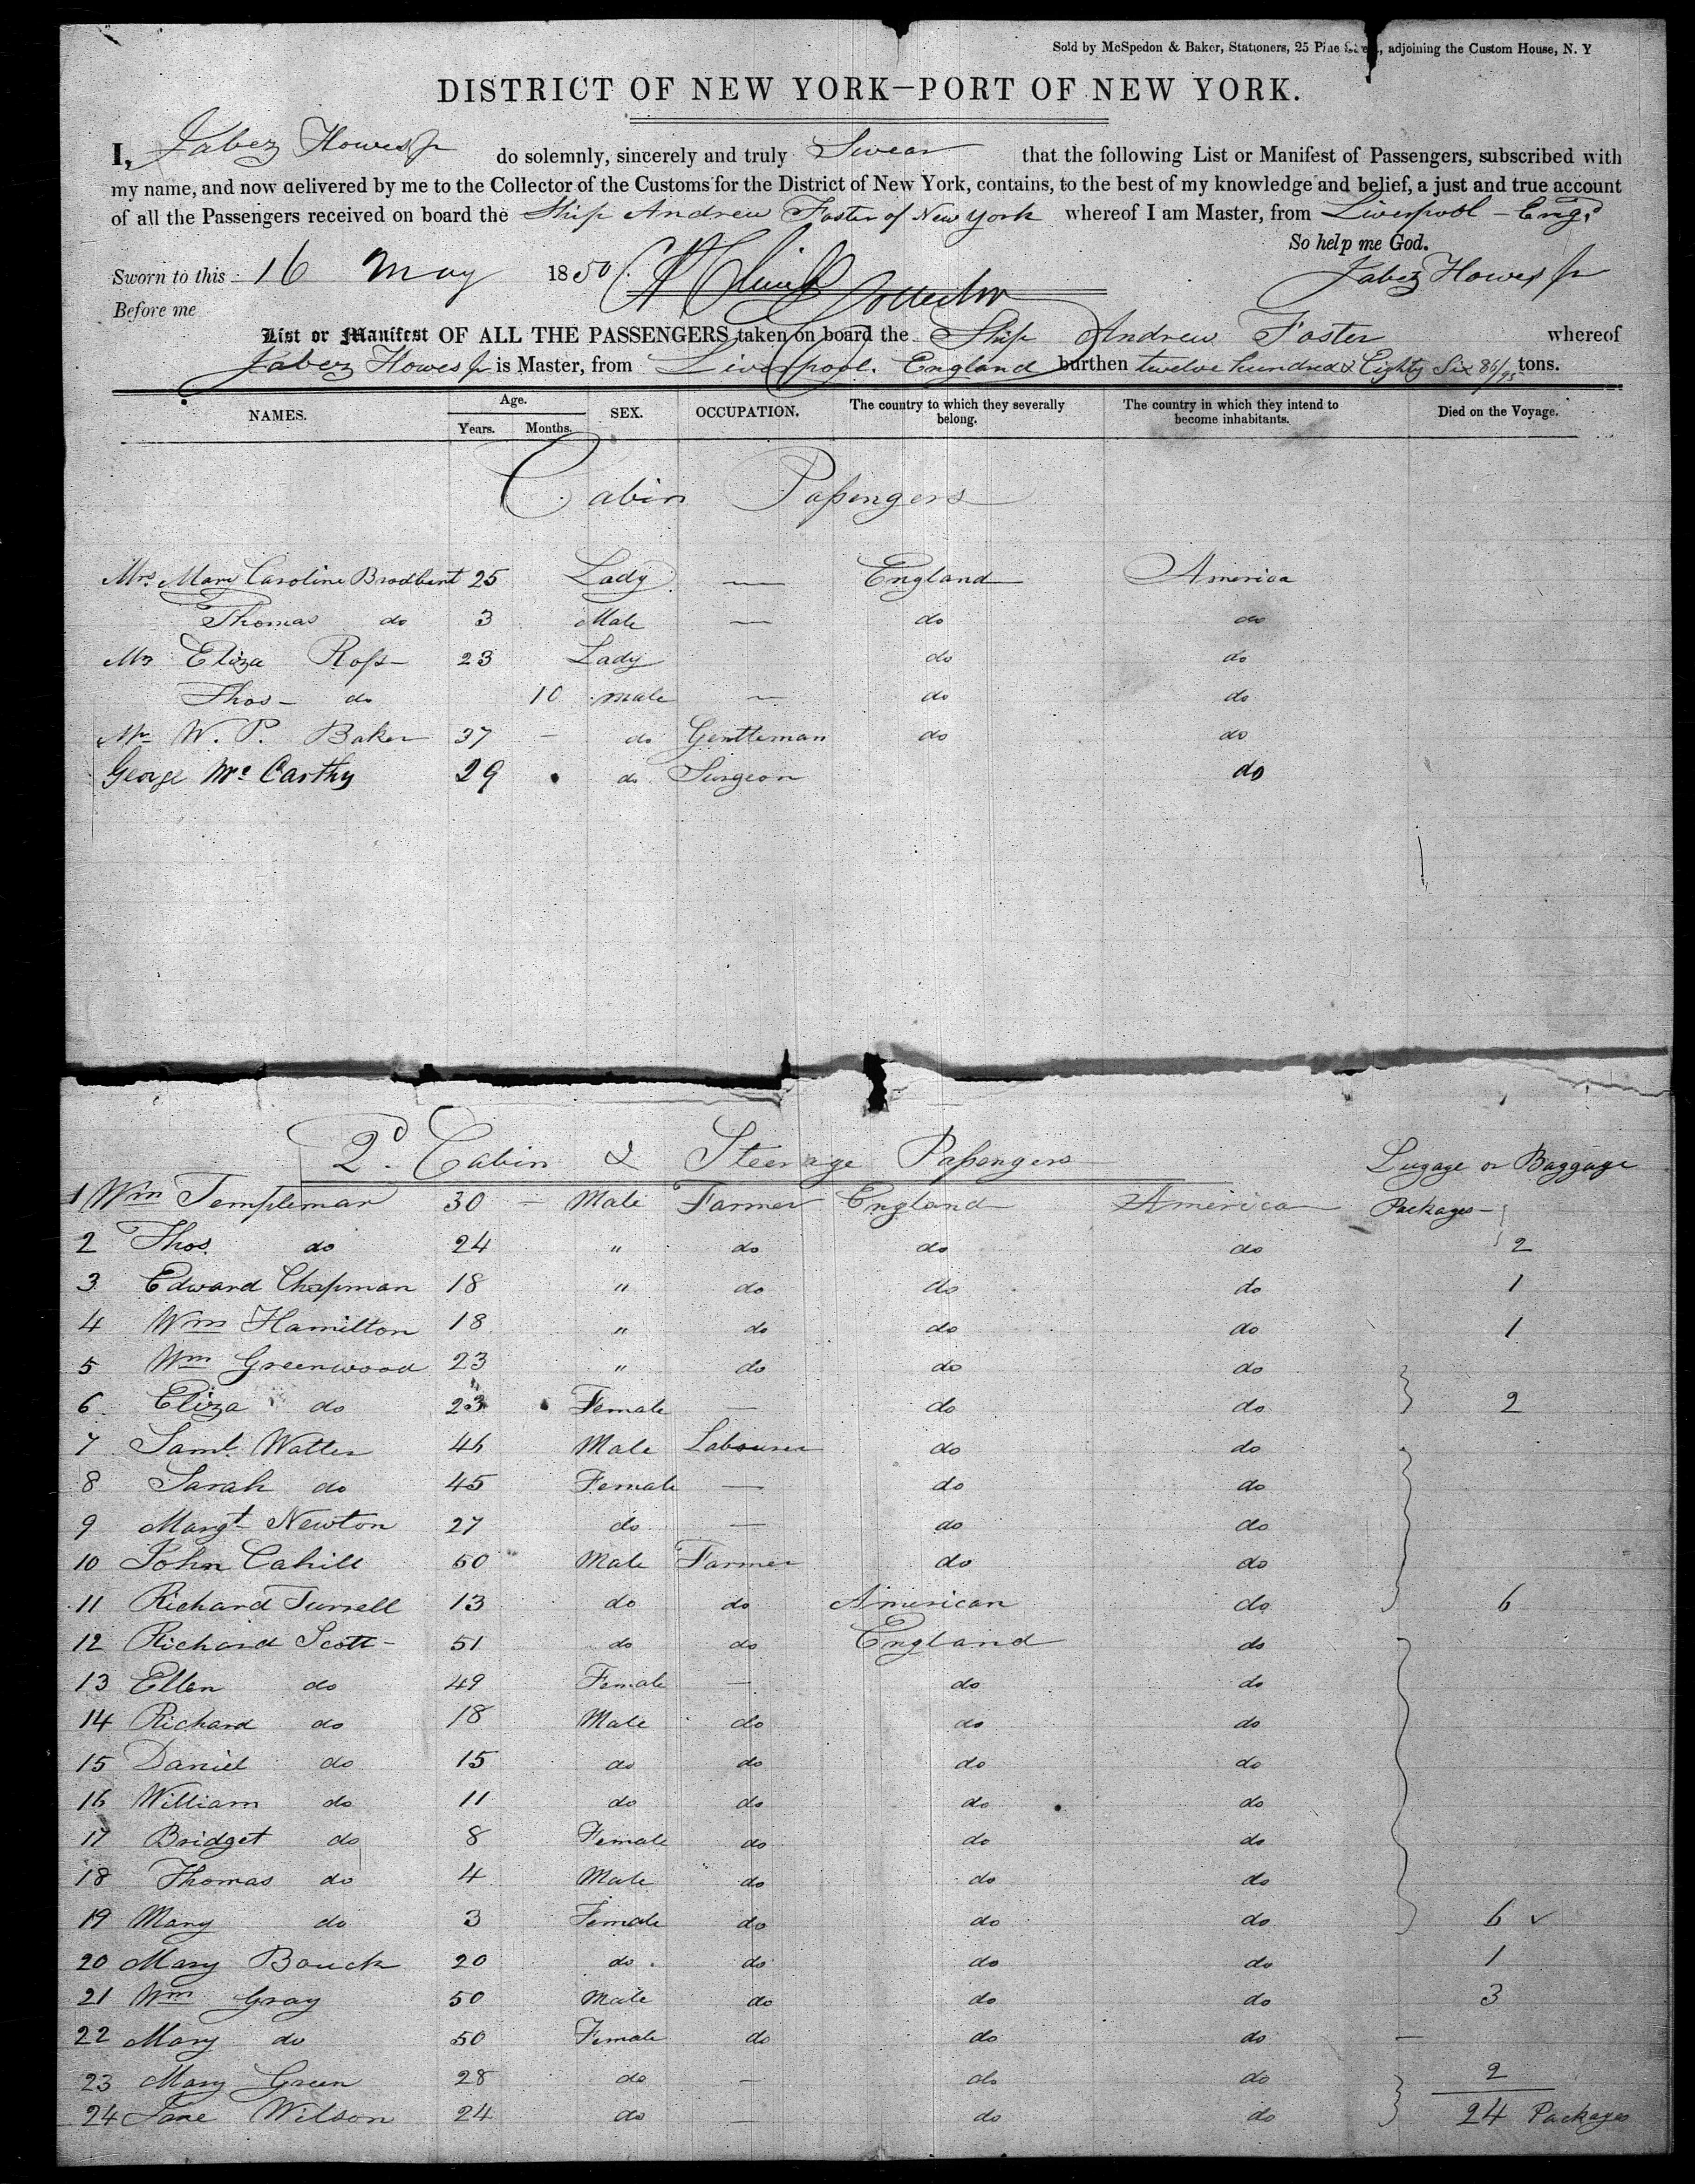 Sold by McSpedon & Baker, Stationers, 25 Pine Street, adjoining the Custom House, N. Y
DISTRICT OF NEW YORK—PORT OF NEW YORK.
I, Jabez Howes Jr do solemnly, sincerely and truly Swear that the following List or Manifest of Passengers, subscribed with
my name, and now delivered by me to the Collector of the Customs for the District of New York, contains, to the best of my knowledge and belief, a just and true account
of all the Passengers received on board the Ship Andrew Foster of New York whereof I am Master, from Liverpool - Engd
So help me God.
Sworn to this 16 May 1850 Jabez Howes Jr
Before me Collector
List or Manifest OF ALL THE PASSENGERS taken on board the Ship Andrew Foster whereof
Jabez Howes Jr is Master, from Liverpool. England burthen twelve hundred & Eighty Six 86/95 tons.
NAMES. Age. Years. Months. SEX. OCCUPATION. The country to which they severally belong. The country in which they intend to become inhabitants. Died on the Voyage.
Cabin Passengers
Mrs Mary Caroline Brodbent 25 Lady — England America
Thomas do 3 Male — do do
Mrs Eliza Ross 23 Lady do do
Thos- do 10 male — do do
Mr W. P. Baker 37 - do Gentleman do do
George McCarthy 29 do Surgeon do
2d Cabin & Steerage Passengers Lugage or Baggage
1 Wm Templeman 30 - Male Farmer England America Packages-
2 Thos. do 24 " do do do 2
3 Edward Chapman 18 " do do do 1
4 Wm Hamilton 18 " do do do 1
5 Wm Greenwood 23 " do do do
6 Eliza do 23 Female — do do 2
7 Saml. Walter 46 Male Labourer do do
8 Sarah do 45 Female — do do
9 Margt Newton 27 do — do do
10 John Cahill 50 Male Farmer do do
11 Richard Turrell 13 do do American do 6
12 Richard Scott- 51 do do England do
13 Ellen do 49 Female — do do
14 Richard do 18 Male do do do
15 Daniel do 15 do do do do
16 William do 11 do do do do
17 Bridget do 8 Female do do do
18 Thomas do 4 Male do do do
19 Mary do 3 Female do do do 6 ✓
20 Mary Bouck 20 do do do do 1
21 Wm Gray 50 Male do do do 3
22 Mary do 50 Female do do do —
23 Mary Green 28 do — do do 2
24 Jane Wilson 24 do — do do 24 Packages